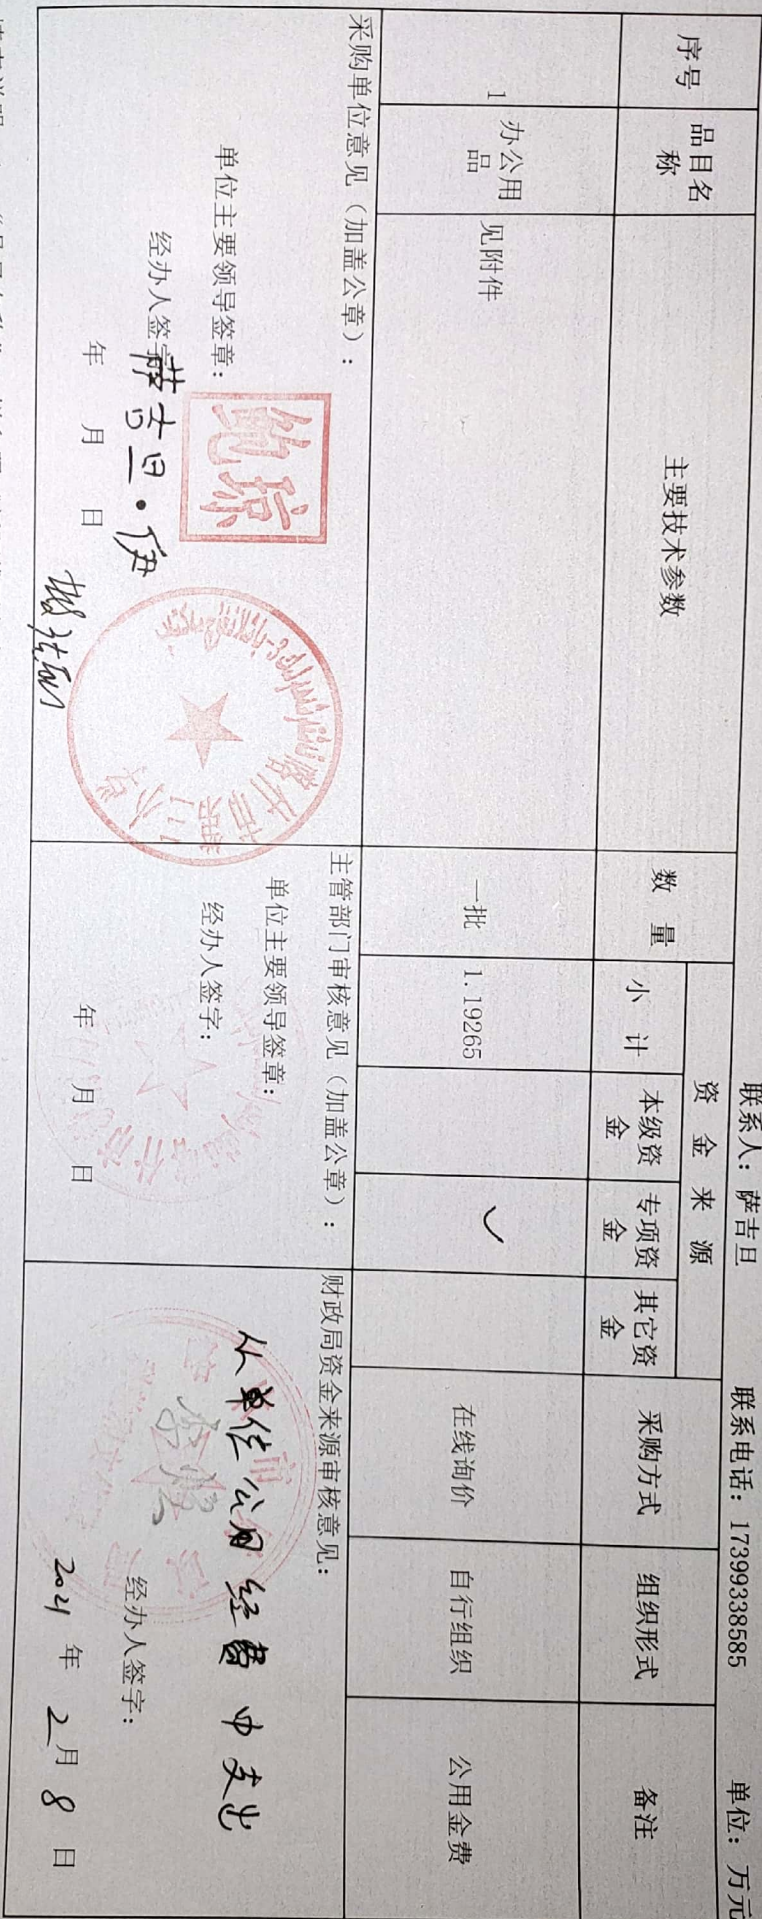 联系人：萨吉旦 联系电话：17399338585 单位：万元
序号 品目名称 主要技术参数 数量 资金来源 采购方式 组织形式 备注
小计 本级资金 专项资金 其它资金
1 办公用品 见附件 一批 1.19265 ✓ 在线询价 自行组织 公用金费
采购单位意见（加盖公章）：
单位主要领导签章：
鲍琼
经办人签字
萨吉旦·伊
年 月 日
主管部门审核意见（加盖公章）：
单位主要领导签章：
经办人签字：
年 月 日
财政局资金来源审核意见：
从单位公用经费中支出
经办人签字：
2021年2月8日